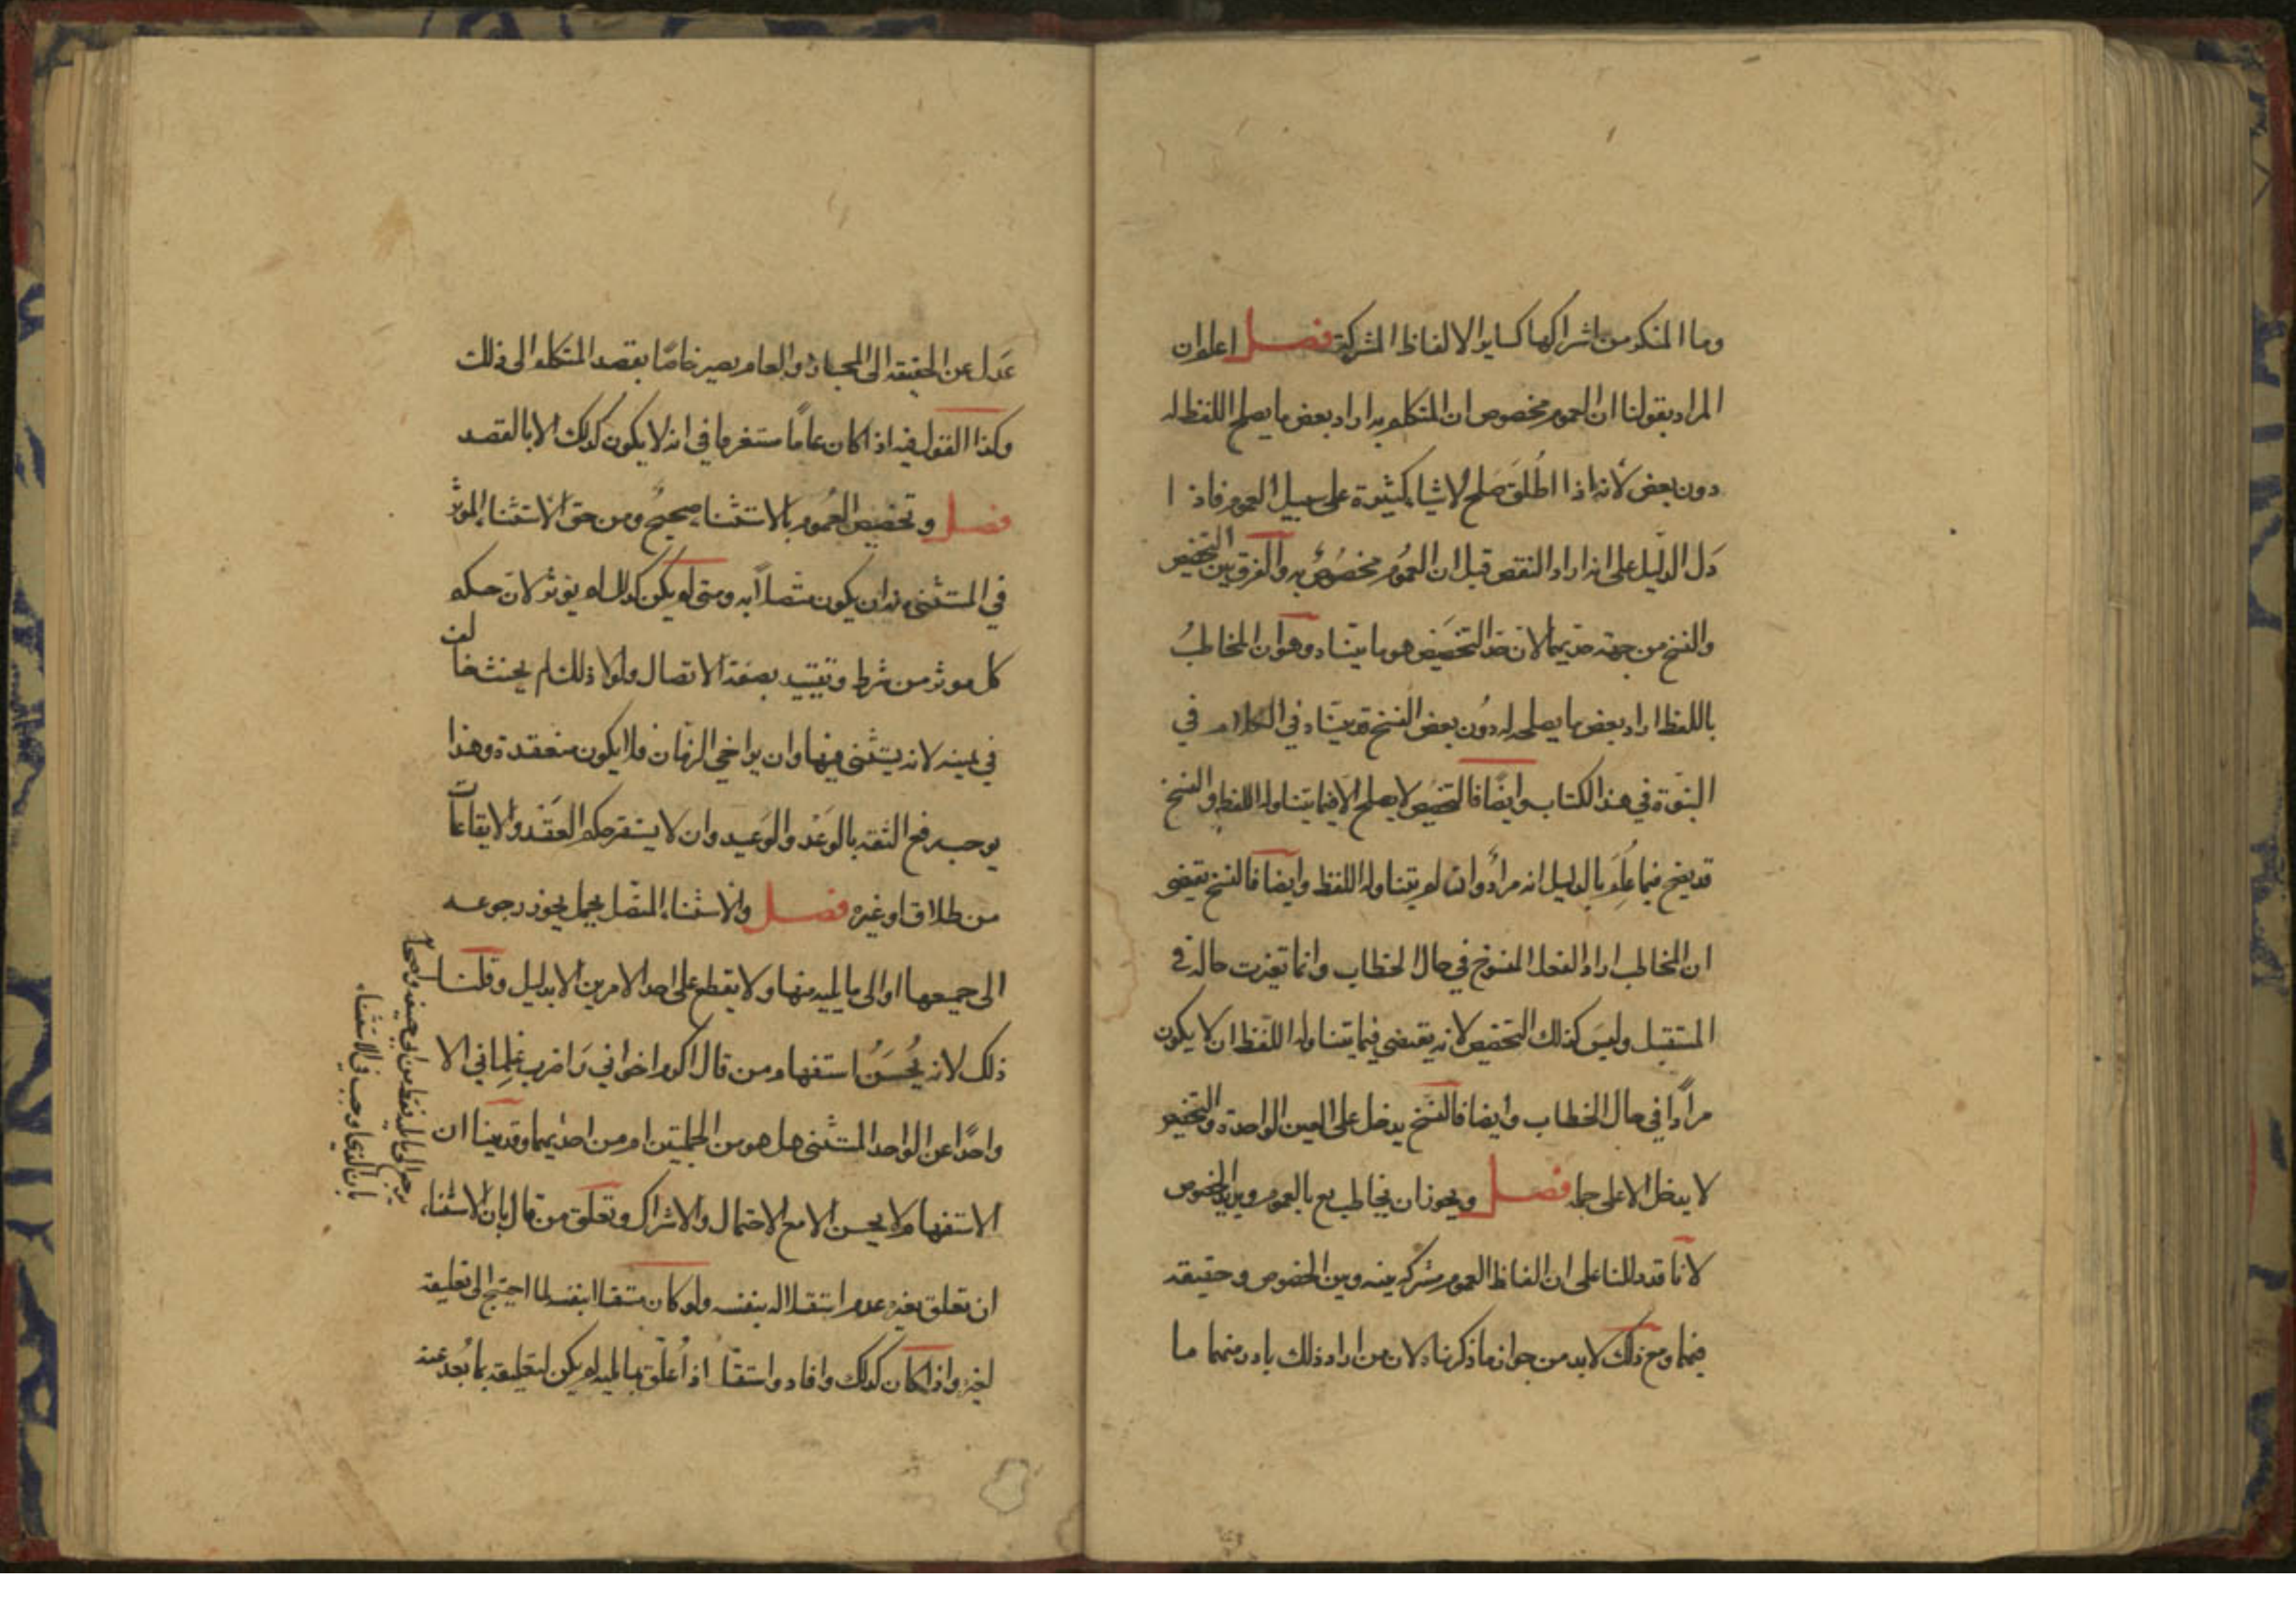 وما المنكر من اشراكها كساير الالفاظ المشركة فصل اعلم ان
المراد بقولنا ان العموم مخصوص ان المتكلم به اراد بعض ما يصلح اللفظ له
دون بعض لأنه اذا اطُلق صَلح لاشياء كثيرة على سبيل العموم فاذا
دَل الدليل على انه اراد النقص قيل ان العمُوم مخصُوصٌ به والفرق بين التخصيص
والنسخ من جهة حديهما لان حَدّ التخصيص هو ما بيّناه وهو ان المخاطبُ
باللفظ اراد بعض ما يصلح له دُون بعض النسخ قد بيّناه في الكلام في
النبوّة في هذا الكتاب وايضًا فالتخصيص لا يصلح الا فيما يتناوله اللفظ والنسخ
قد يصح فيما عُلِمَ بالدليل انه مرادٌ وان لم يتناوله اللفظ وايضا فالنسخ يقتضى
ان المخاطب اراد الفعل المنسوخ في حال الخطاب وانما تغيرت حاله في
المستقبل وليسَ كذلك التخصيص لانه يقتضى فيما يتناوله اللّفظ ان لا يكون
مرادًا في حال الخطاب وايضا فالنسخ يدخل على العين الواحدة والتخصيص
لا يدخل الا على جملة فصل ويجوز ان يخاطب تع بالعموم ويريد الخصوص
لانا قد دللنا على ان الفاظ العموم مشتركة بينه وبين الخصوص وحقيقة
فيهما ومع ذلك لا بد من جواز ما ذكرناه لان من اراد ذلك باد رمنهما ما
عَدل عن الحقيقة الى المجاز والعام يصير خاصًا بقصد المتكلم الى ذلك
وكذا القول فيه اذا كان عامًا مستغرقا في انه لا يكون كذلك الا بالقصد
فصل وتخصيص العُموم بالاستثناء صحيحٌ ومن حق الاستثناء المؤثر
في المستثنى منه ان يكون متصلاً به ومتى لم يكن كذلك لم يؤثر لان حكم
كل موثر من شرط وتقييد بصفة الاتصال ولولا ذلك لم يحنث حالف
في يمينه لانه يستثنى فيها وان تراخى الزمان فلا يكون منعقدة وهذا
يوجب رفع الثقة بالوَعْد والوَعيد وان لا يستقر حكم العَقْد والايقاعات
من طلاق او غيره فصل والاستثناء المتصل بجمل يجوز رجوعه
الى جميعها او الى ما يليه منها ولا يقطع على احد الامرين الا بدليل وقلنا
ذلك لانه يُحسَنُ استفهام من قال اكرم اخواني وَاضرب غِلماني الا
واحدًا عن الواحد المستثنى هل هو من الجملتين ام من احديهما وقد بينا ان
الاستفهام لا يحسن الا مع الاحتمال والاشراك وتعلق من قال بان الاستثناء
يرجع الى ما يليه فقط من ابى حنيفة واصحابه
بان الذى اوجب في الاستثناء
ان تعلق بغيره عدم استقلاله بنفسه ولو كان مستقلا بنفسه لما احتيج الى تعليقه
لغيره واذا كان كذلك وافاد واستقل اذا عُلّق بما يليه لم يكن لتعليقه بما بَعُد عنه